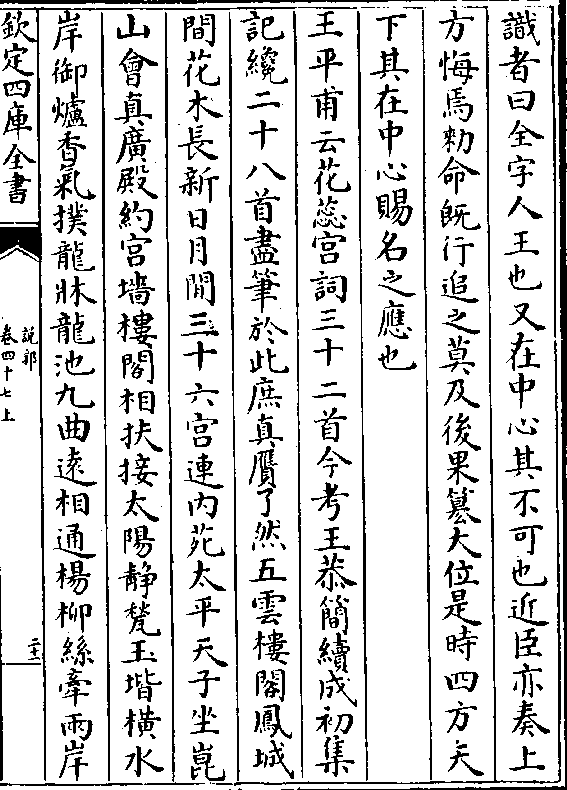 識者曰全字人王也又在中心其不可也近臣亦奏上
方悔焉勑命既行追之莫及後果簒大位是時四方天
下其在中心賜名之應也
王平甫云花蕊宫詞三十二首今考王恭簡續成初集
記纔二十八首盡筆於此庶真贋了然五雲樓閣鳳城
間花木長新日月閒三十六宫連内苑太平天子坐崑
山會真廣殿約宫墻樓閣相扶接太陽静甃玉堦横水
岸御爐香氣撲龍牀龍池九曲逺相通楊柳絲牽兩岸
欽定四庫全書
說郛
卷四十七上
二十二